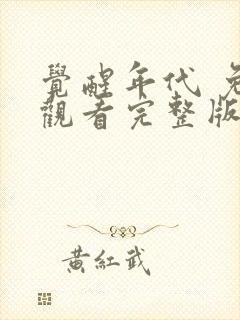 覺醒年代 免
觀看完整版
黃紅武